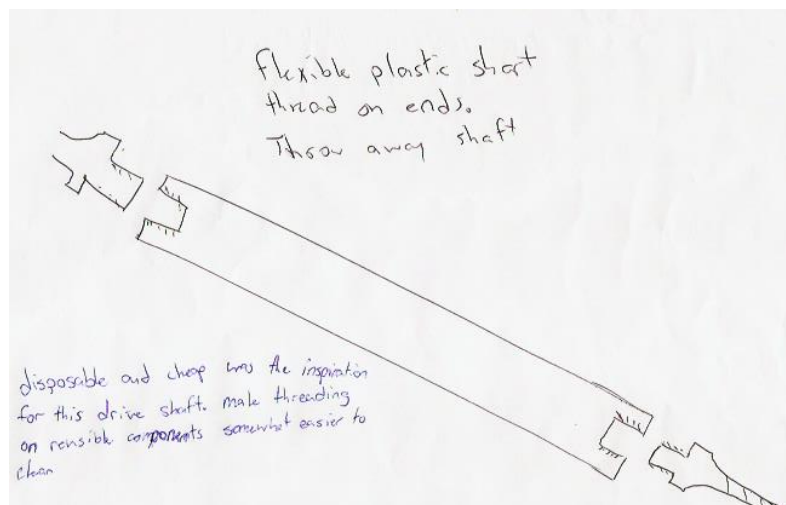 flexible plastic shart
thread on ends.
Throw away shaft
disposable and cheap was the inspiration
for this drive shaft. male threading
on reusible components somewhat easier to
clean